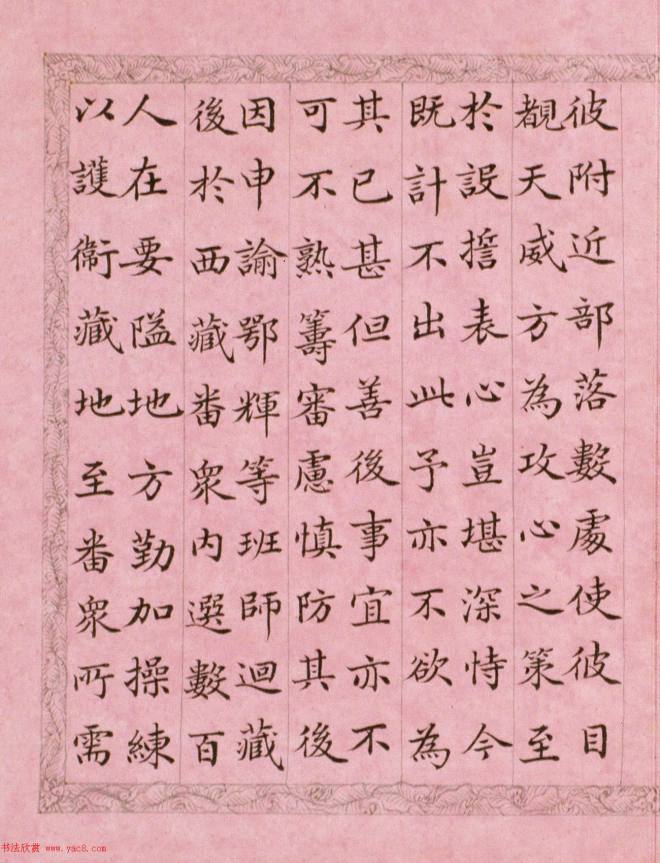 彼附近部落數處使彼目
覩天威方為攻心之策至
於設誓表心豈堪深恃今
既計不出此予亦不欲為
其已甚但善後事宜亦不
可不熟籌審慮慎防其後
因申諭鄂輝等班師迴藏
後於西藏番衆內選數百
人在要隘地方勤加操練
以護衞藏地至番衆所需
书法欣赏 www.yac8.com